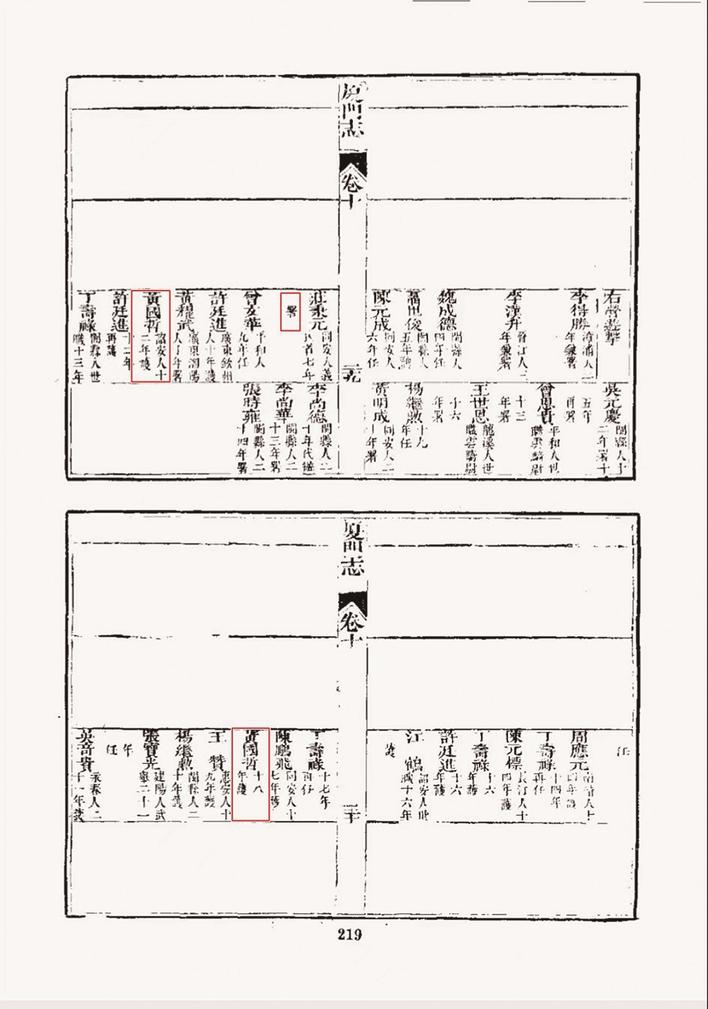 廈門志
卷十
右營遊擊
李得勝 漳浦人二年兼署
李漢升 晉江人三年兼署
魏成德 閩縣人四年任
閩縣人五年任
陳元成 同安人六年任
莊秉元 同安人義
署
曾文華 平和人九年任
許廷進 廣東欽州人十年護
黃耀武
黃國哲 詔安人十二年護
許廷進 十二年再護
丁壽祿 閩縣人世職十三年
吳元慶 閩縣人十二年署十
五年再署
曾思貴 平和人世職雲騎尉
十三年署
王世恩 龍溪人世職雲騎尉
十六年署
楊繼勲 十九年任
黃明成 同安人二十年署
李尚德 閩縣人二十年代護
李尚華 閩縣人二十三年署
張時雍 閩縣人二十四年署
三九
廈門志
卷十
任
周應元 人十四年護
丁壽祿 十四年再任
陳元標 長汀人十四年護
丁壽祿 十六年
許廷進 十六年護
江鶴 詔安人世職十六年
護
丁壽祿 十七年回任
陳鵬飛 同安人十七年護
黃國哲 十八年護
王贊 惠安人十九年護
楊繼勲 閩縣人二十年護
張寶光 建陽人武舉二十一
年任
吳奇貴 人二十一年護
三十
219